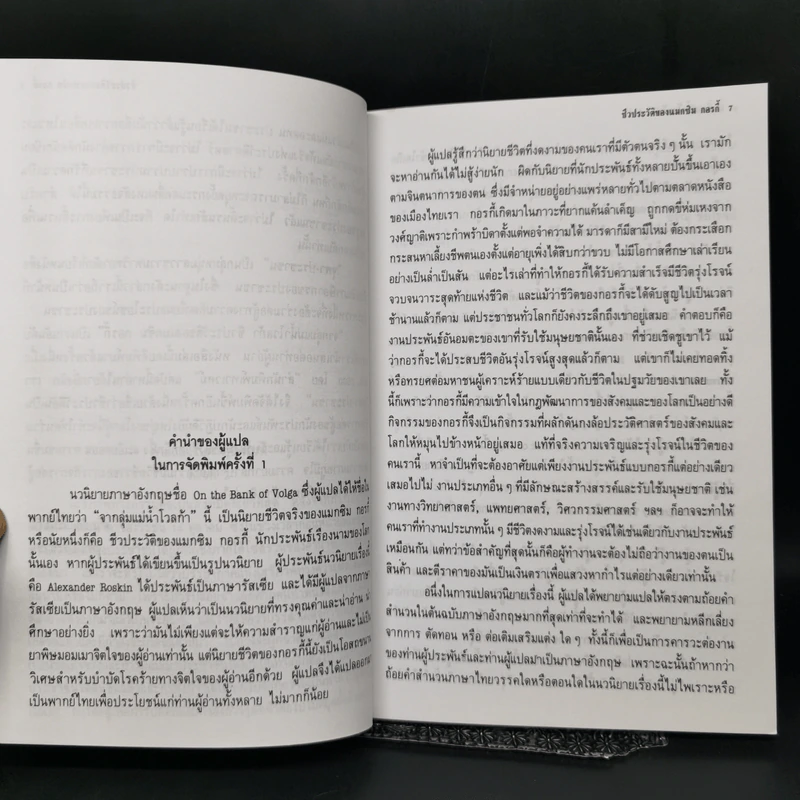 คำนำของผู้แปล
ในการจัดพิมพ์ครั้งที่ 1
นวนิยายภาษาอังกฤษชื่อ On the Bank of Volga ซึ่งผู้แปลได้ให้ชื่อใน
พากย์ไทยว่า “จากลุ่มแม่น้ำโวลก้า” นี้ เป็นนิยายชีวิตจริงของแมกซิม กอรกี้
หรือนัยหนึ่งก็คือ ชีวประวัติของแมกซิม กอรกี้ นักประพันธ์เรืองนามของโลก
นั้นเอง หากผู้ประพันธ์ได้เขียนขึ้นเป็นรูปนวนิยาย ผู้ประพันธ์นวนิยายเรื่องนี้
คือ Alexander Roskin ได้ประพันธ์เป็นภาษารัสเซีย และได้มีผู้แปลจากภาษา
รัสเซียเป็นภาษาอังกฤษ ผู้แปลเห็นว่าเป็นนวนิยายที่ทรงคุณค่าและน่าอ่าน
ศึกษาอย่างยิ่ง เพราะว่ามันไม่เพียงแต่จะให้ความสำราญแก่ผู้อ่านและไม่เป็น
ยาพิษมอมเมาจิตใจของผู้อ่านเท่านั้น แต่นิยายชีวิตของกอรกี้นี้ยังเป็นโอสถขนาน
วิเศษสำหรับบำบัดโรคร้ายทางจิตใจของผู้อ่านอีกด้วย ผู้แปลจึงได้แปลออก
เป็นพากย์ไทยเพื่อประโยชน์แก่ท่านผู้อ่านทั้งหลาย ไม่มากก็น้อย
ชีวประวัติของแมกซิม กอรกี้ 7
ผู้แปลรู้สึกว่านิยายชีวิตที่งดงามของคนเราที่มีตัวตนจริง ๆ นั้น เรามัก
จะหาอ่านกันได้ไม่สู้ง่ายนัก ผิดกับนิยายที่นักประพันธ์ทั้งหลายปั้นขึ้นเอาเอง
ตามจินตนาการของตน ซึ่งมีจำหน่ายอยู่อย่างแพร่หลายทั่วไปตามตลาดหนังสือ
ของเมืองไทยเรา กอรกี้เกิดมาในภาวะที่ยากแค้นลำเค็ญ ถูกกดขี่ห่มเหงจาก
วงศ์ญาติเพราะกำพร้าบิดาตั้งแต่พอจำความได้ มารดาก็มีสามีใหม่ ต้องกระเสือก
กระสนหาเลี้ยงชีพตนเองตั้งแต่อายุเพิ่งได้สิบกว่าขวบ ไม่มีโอกาสศึกษาเล่าเรียน
อย่างเป็นล่ำเป็นสัน แต่อะไรเล่าที่ทำให้กอรกี้ได้รับความสำเร็จมีชีวิตรุ่งโรจน์
จวบจนวาระสุดท้ายแห่งชีวิต และแม้ว่าชีวิตของกอรกี้จะได้ดับสูญไปเป็นเวลา
ช้านานแล้วก็ตาม แต่ประชาชนทั่วโลกก็ยังคงระลึกถึงเขาอยู่เสมอ คำตอบก็คือ
งานประพันธ์อันอมตะของเขาที่รับใช้มนุษยชาตินั้นเอง ที่ช่วยเชิดชูเขาไว้ แม้
ว่ากอรกี้จะได้ประสบชีวิตอันรุ่งโรจน์สูงสุดแล้วก็ตาม แต่เขาก็ไม่เคยทอดทิ้ง
หรือทรยศต่อมหาชนผู้เคราะห์ร้ายแบบเดียวกับชีวิตในปฐมวัยของเขาเลย ทั้ง
นี้ก็เพราะว่ากอรกี้มีความเข้าใจในกฎพัฒนาการของสังคมและของโลกเป็นอย่างดี
กิจกรรมของกอรกี้จึงเป็นกิจกรรมที่ผลักดันกงล้อประวัติศาสตร์ของสังคมและ
โลกให้หมุนไปข้างหน้าอยู่เสมอ แท้ที่จริงความเจริญและรุ่งโรจน์ในชีวิตของ
คนเรานี้ หาจำเป็นที่จะต้องอาศัยแต่เพียงงานประพันธ์แบบกอรกี้แต่อย่างเดียว
เสมอไปไม่ งานประเภทอื่น ๆ ที่มีลักษณะสร้างสรรค์และรับใช้มนุษยชาติ เช่น
งานทางวิทยาศาสตร์, แพทยศาสตร์, วิศวกรรมศาสตร์ ฯลฯ ก็อาจจะทำให้
คนเราที่ทำงานประเภทนั้น ๆ มีชีวิตงดงามและรุ่งโรจน์ได้เช่นเดียวกับงานประพันธ์
เหมือนกัน แต่ทว่าข้อสำคัญที่สุดนั้นก็คือผู้ทำงานจะต้องไม่ถือว่างานของตนเป็น
สินค้า และตีราคาของมันเป็นเงินตราเพื่อแสวงหากำไรแต่อย่างเดียวเท่านั้น
อนึ่งในการแปลนวนิยายเรื่องนี้ ผู้แปลได้พยายามแปลให้ตรงตามถ้อยคำ
สำนวนในต้นฉบับภาษาอังกฤษมากที่สุดเท่าที่จะทำได้ และพยายามหลีกเลี่ยง
จากการ ตัดทอน หรือ ต่อเติมเสริมแต่ง ใด ๆ ทั้งนี้ก็เพื่อเป็นการคารวะต่องาน
ของท่านผู้ประพันธ์และท่านผู้แปลมาเป็นภาษาอังกฤษ เพราะฉะนั้นถ้าหากว่า
ถ้อยคำสำนวนภาษาไทยวรรคใดหรือตอนใดในนวนิยายเรื่องนี้ไม่ไพเราะหรือ